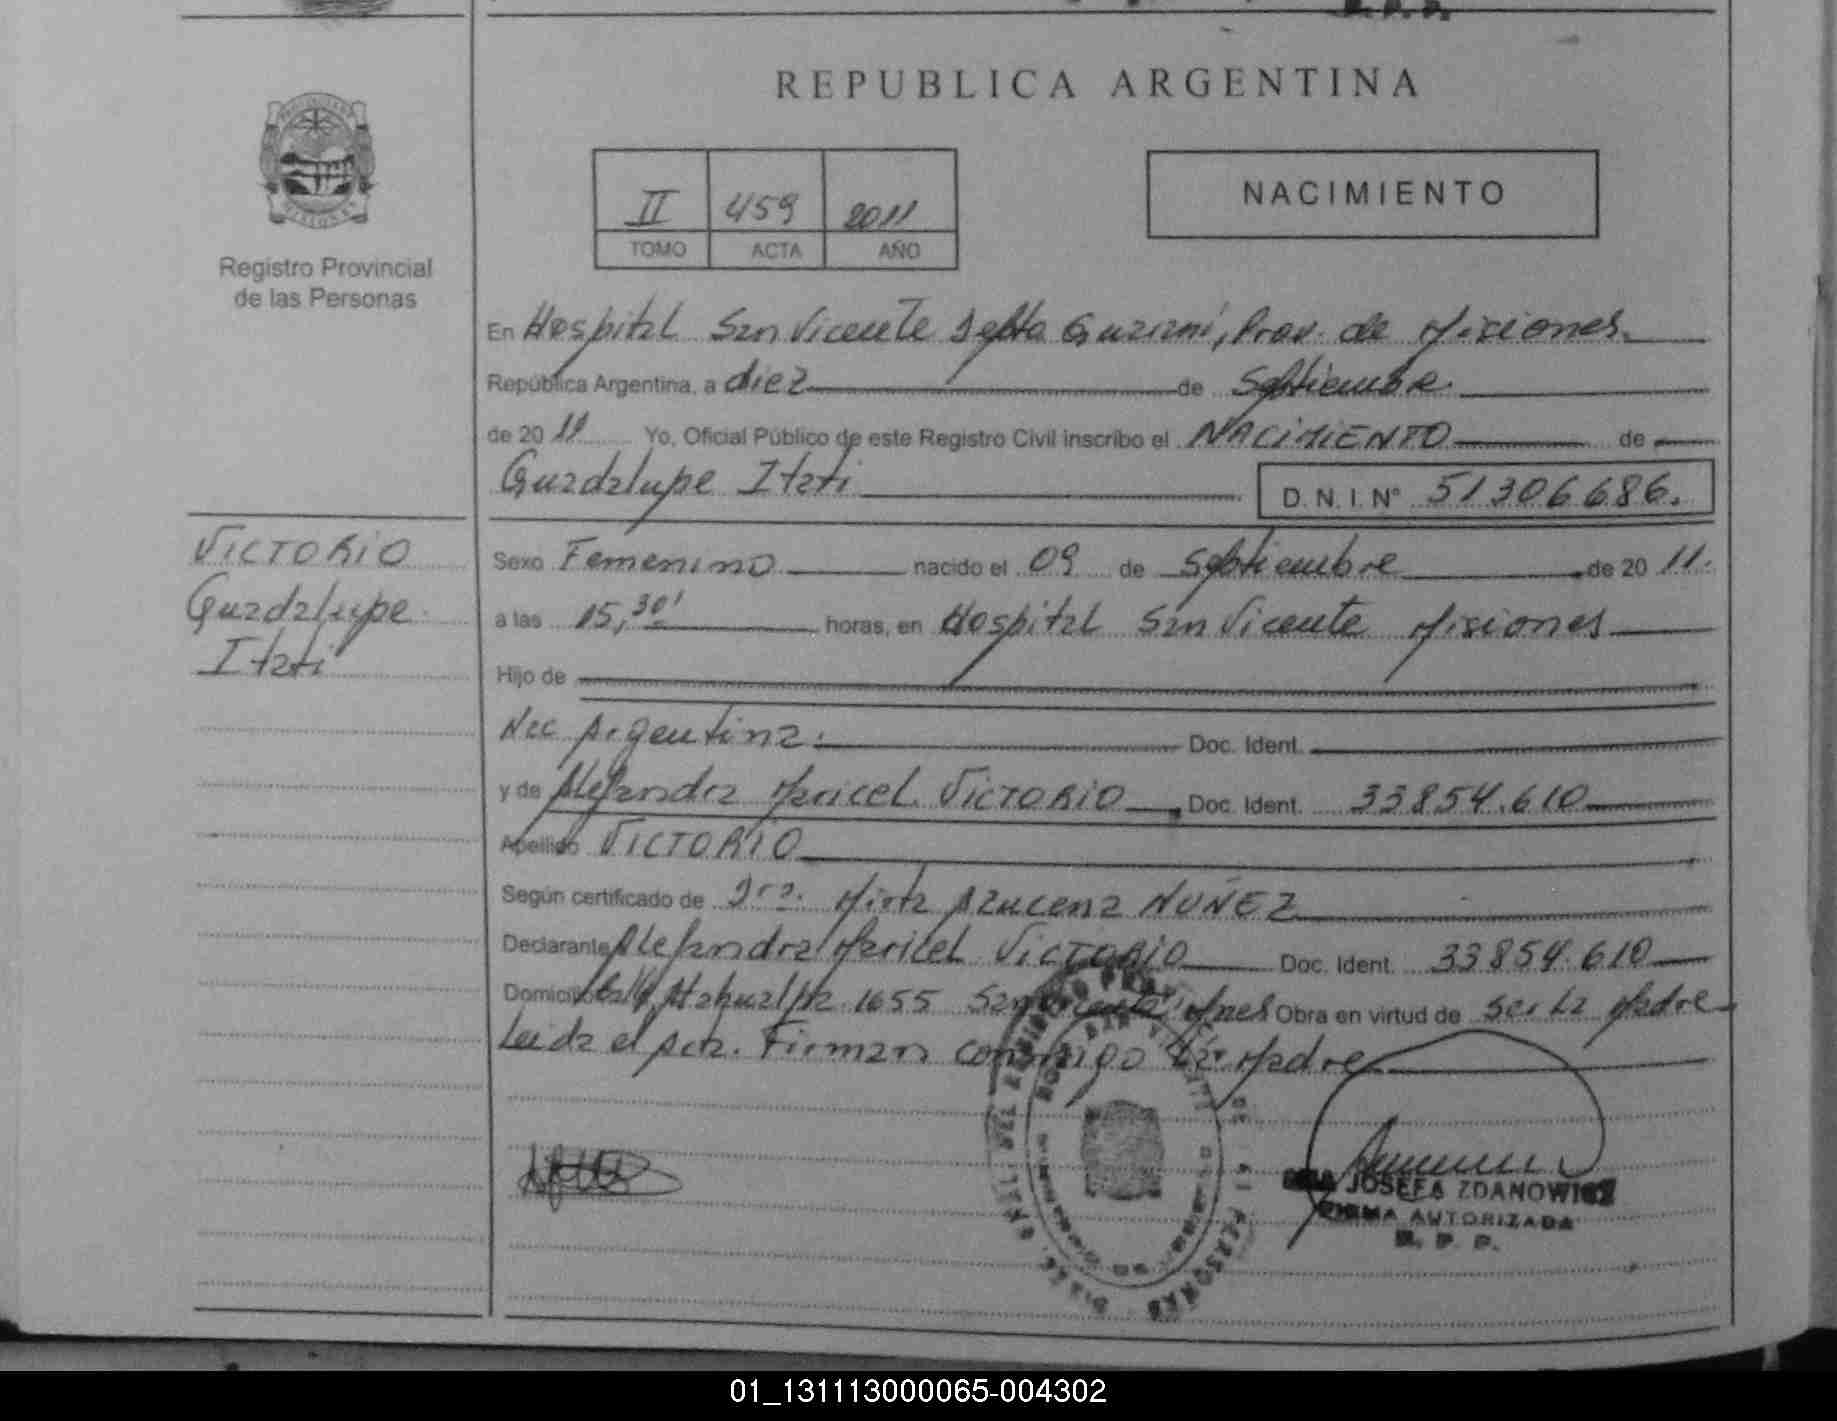 REPUBLICA ARGENTINA
II 459 2011
TOMO ACTA AÑO
NACIMIENTO
Registro Provincial
de las Personas
En Hospital San Vicente Depto Guaraní, Prov. de Misiones
República Argentina, a diez de Septiembre
de 2011 Yo, Oficial Público de este Registro Civil inscribo el NACIMIENTO de
Guadalupe Itati D.N.I. N° 51306686.
VICTORIO
Guadalupe
Itati
Sexo Femenino nacido el 09 de Septiembre de 2011.
a las 15,30' horas, en Hospital San Vicente Misiones
Hijo de
Nac Argentina. Doc. Ident.
y de Alejandra Maricel VICTORIO Doc. Ident. 33854.610
Apellido VICTORIO
Según certificado de Dra. Mirta Azucena NUÑEZ
Declarante Alejandra Maricel VICTORIO Doc. Ident. 33854.610
Domicilio Calle Atahualpa 1655 San Vicente Mnes Obra en virtud de ser La Madre
Leida el Acta. Firman conmigo La Madre
JOSEFA ZDANOWICZ
FIRMA AUTORIZADA
R. P. P.
01_131113000065-004302